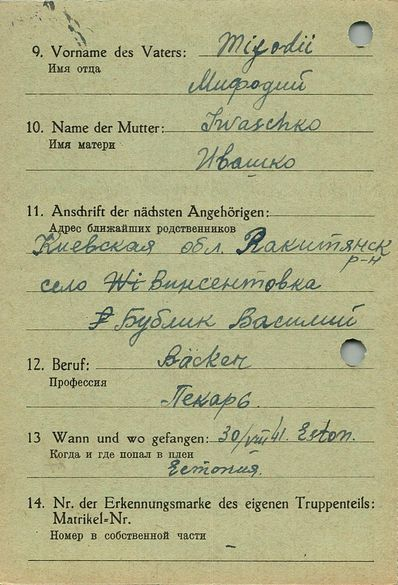 9. Vorname des Vaters: Mifodii
Имя отца
Мифодий
10. Name der Mutter: Iwaschko
Имя матери
Ивашко
11. Anschrift der nächsten Angehörigen:
Адрес ближайших родственников
Киевская обл. Ракитянск
р-н
село Винсентовка
Бублик Василий
12. Beruf: Bäcker
Профессия
Пекарь.
13 Wann und wo gefangen: 30/VIII 41. Eston.
Когда и где попал в плен
Естония.
14. Nr. der Erkennungsmarke des eigenen Truppenteils:
Matrikel=Nr.
Номер в собственной части
–